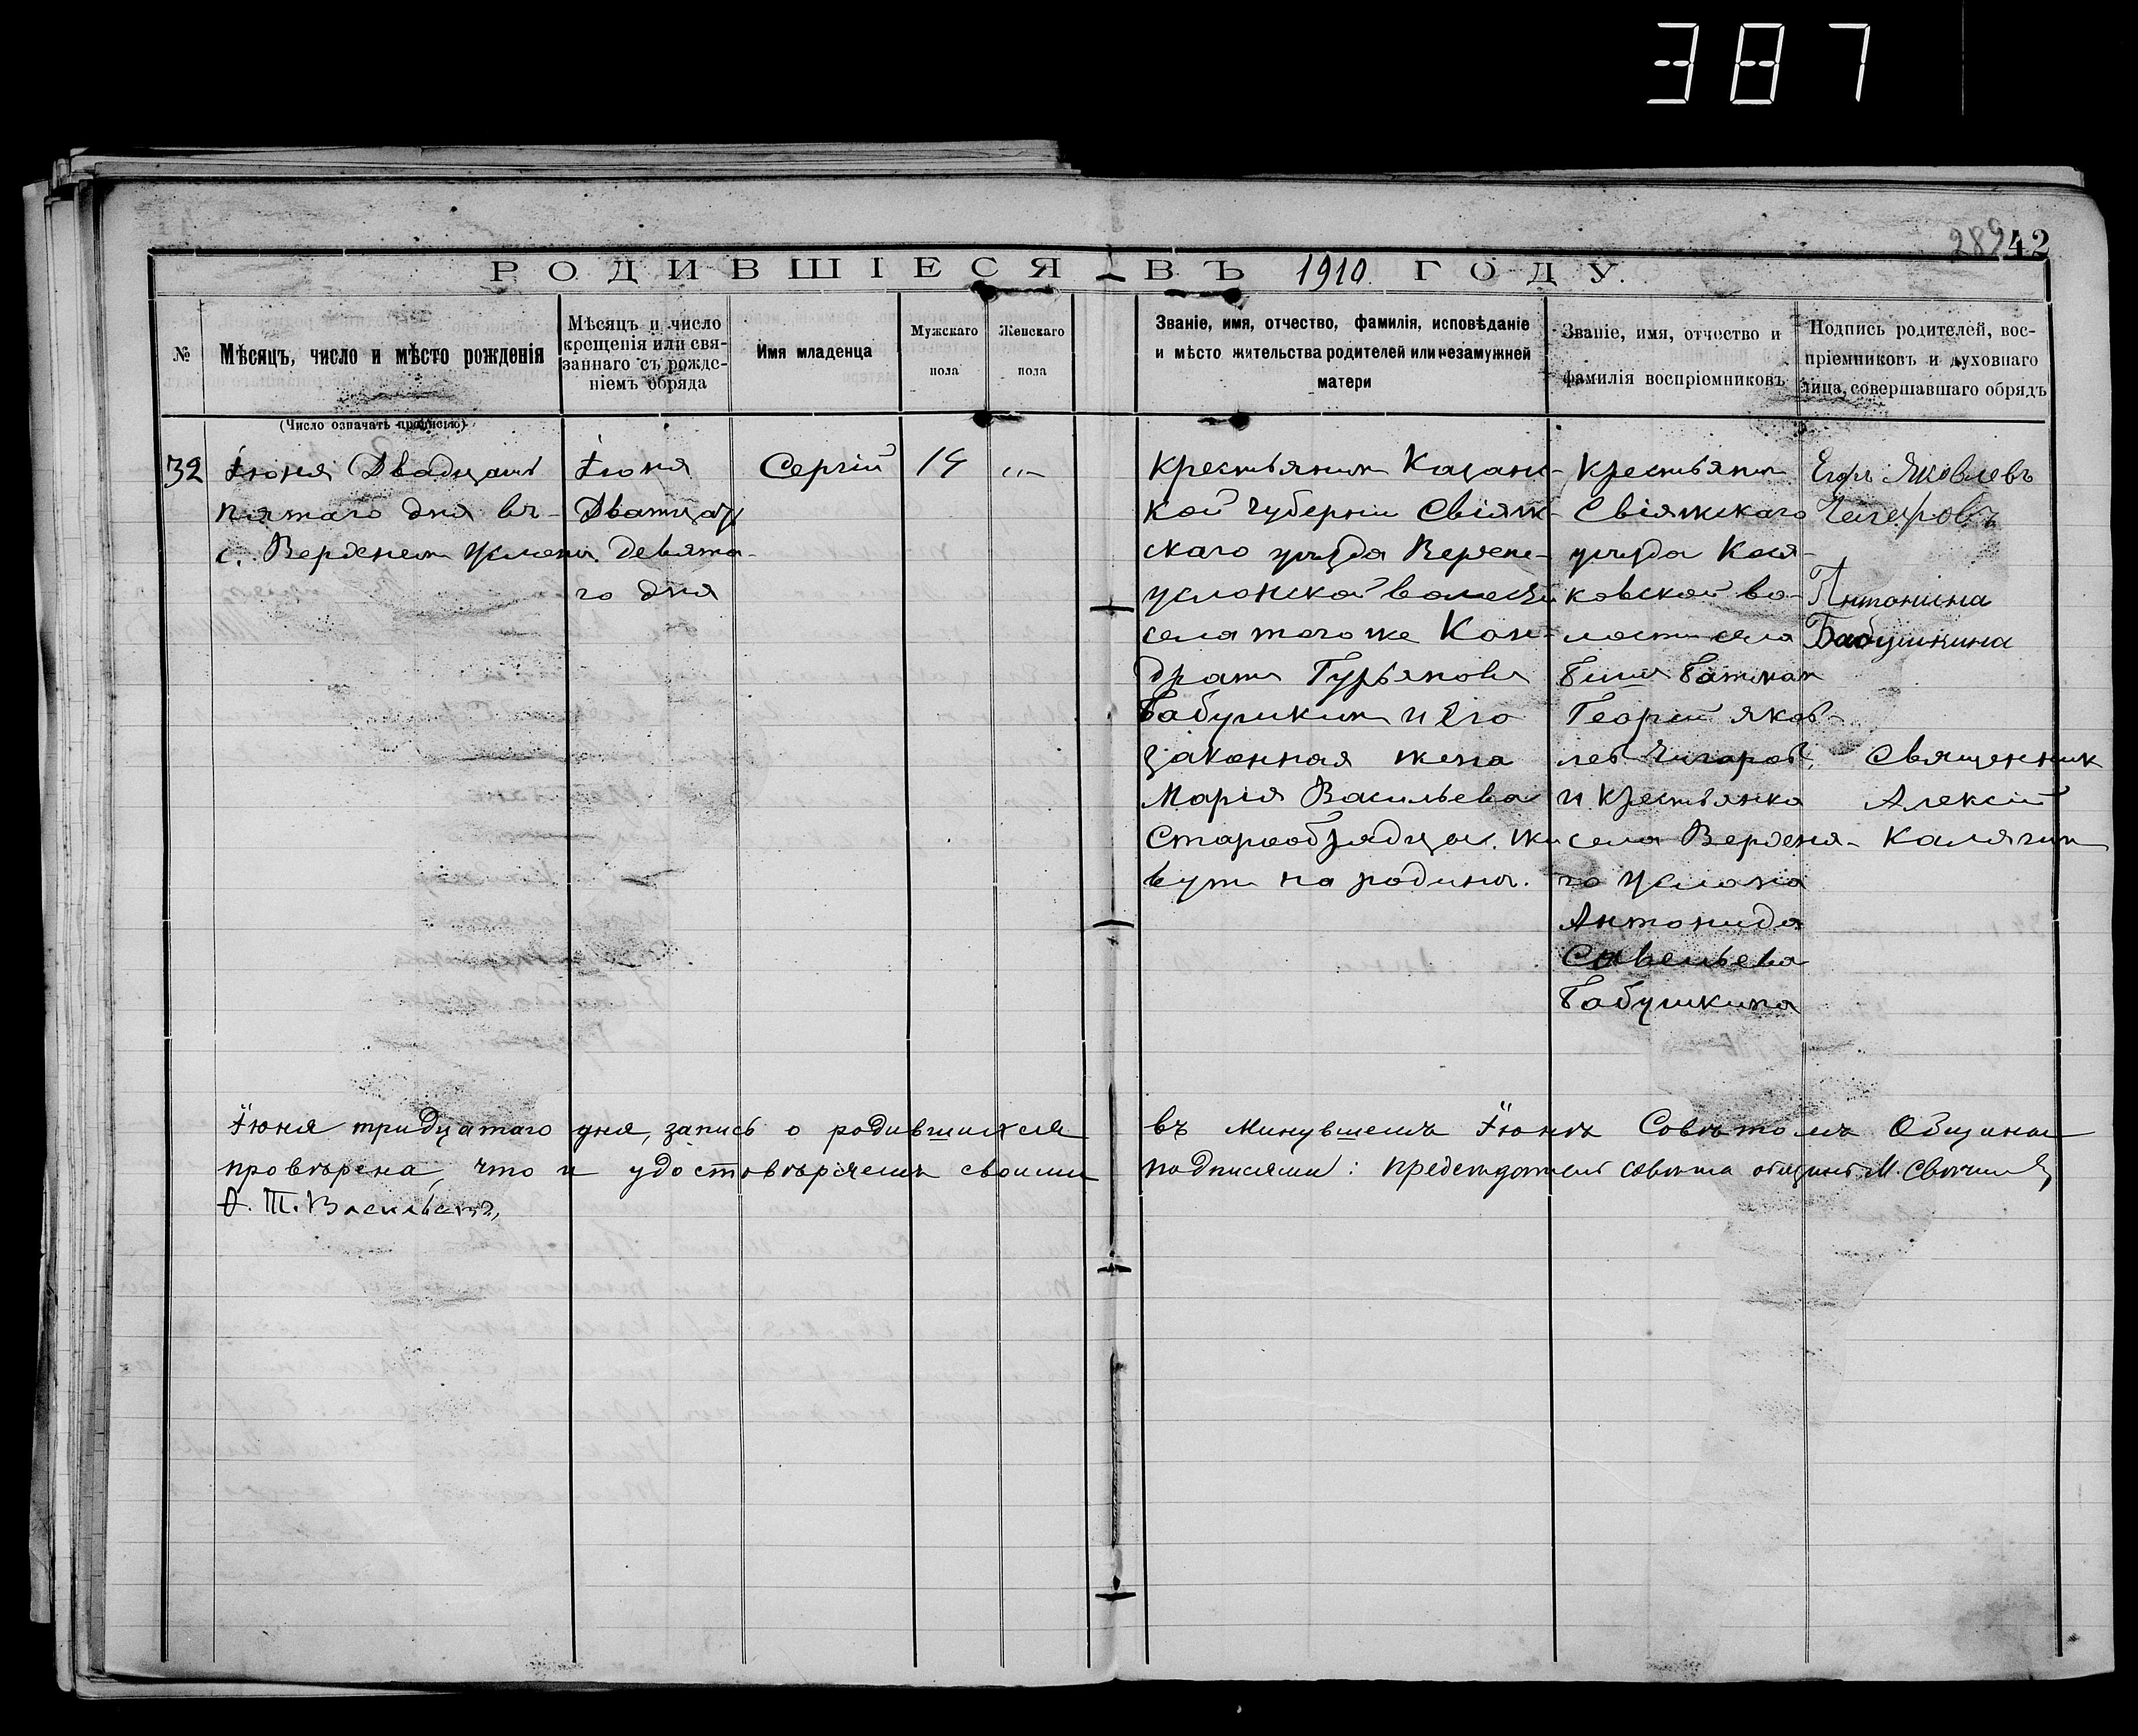 387
289 42
РОДИВШІЕСЯ ВЪ 1910. ГОДУ.
№
Мѣсяцъ, число и мѣсто рожденія
(Число означать прописью)
Мѣсяцъ и число
крещенія или свя-
заннаго съ рожде-
ніемъ обряда
Имя младенца
Мужскаго
пола
Женскаго
пола
Званіе, имя, отчество, фамилія, исповѣданіе
и мѣсто жительства родителей или незамужней
матери
Званіе, имя, отчество и
фамилія воспріемниковъ
Подпись родителей, вос-
пріемниковъ и духовнаго
лица, совершавшаго обрядъ
32
Іюня Двадцать
пятаго дня въ
с. Верхнем Услоне.
Іюня
Дватцать
девята-
го дня
Сергій
19
"-
Крестьянин Казанс-
кой губерніи Свіяж-
скаго уезда Верхне-
услонской волости
села того же Кон-
драт Гурьянов
Бабушкин и его
законная жена
Марія Васильева
Старообрядцы. жи
вут на родине.
Крестьянин
Свіяжскаго
уезда Кося-
ковской во-
лости села
Георгій Яков-
лев Чигаров,
и Крестьянка
села Верхня-
го Услона
Антонида
Савельева
Бабушкина
Егоръ Яковлевъ
Чегаровъ
Антонина
Бабушкина
Священник
Алексій
Калягин
Іюня тридцатаго дня, запись о родившихся въ минувшемъ Іюнѣ Совѣтомъ Общины
провѣрена, что и удостовѣряемъ своими подписями: председатель совѣта общины М.
Т. Васильевъ,